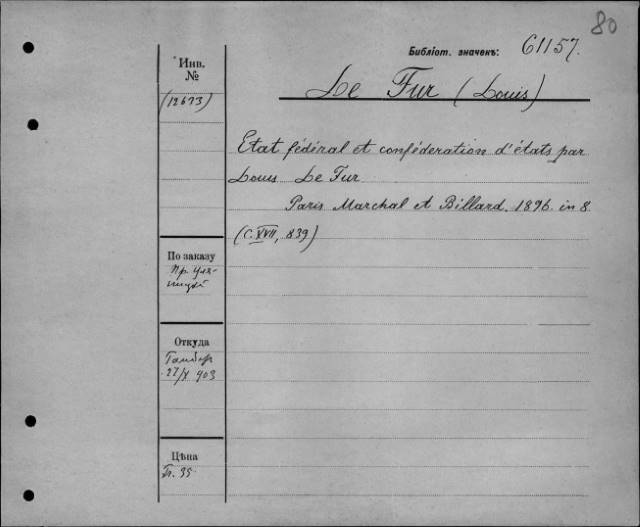 80
Библіот. значекъ: 61157.
Инв.
№
(12673)
Le Fur (Louis)
Etat fédéral et conféderation d'états par
Louis Le Fur
Paris Marchal et Billard. 1896. in 8.
(C. XVII, 839)
По заказу
Пр.
Откуда
27/X 903
Цѣна
35